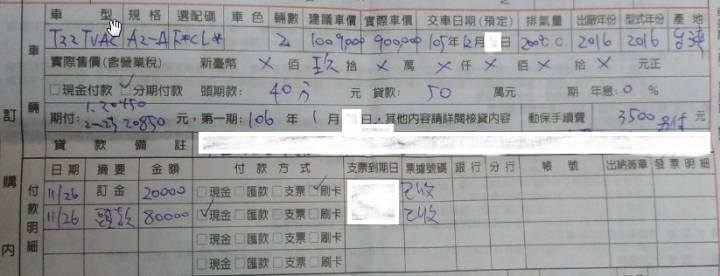 車 型 規格 選配碼 車色 輛數 建議車價 實際車價 交車日期(預定) 排氣量 出廠年份 型式年份 產地
T32 TVAC A2-A F*CL* 2 1009000 900000 105年12月 日 2000C.C. 2016 2016 台灣
實際售價(含營業稅) 新臺幣 × 佰 玖 拾 × 萬 × 仟 × 佰 × 拾 × 元正
□現金付款 ✓分期付款 頭期款: 40萬 元 貸款: 50 萬元 期 年息: 0 %
期付: 1. 20450 2~24 20850 元,第一期: 106 年 1 月 日,其他內容請詳閱核貸內容 動保手續費 3500 元
貸款備註
車輛
訂購內
付款明細
日期 摘要 金額 付款方式 支票到期日 票據號碼 銀行 分行 帳號 出納簽章 發票明細
11/26 訂金 20000 □現金 □匯款 □支票 ✓刷卡 已收
11/26 頭款 80000 ✓現金 □匯款 □支票 □刷卡 已收
□現金 □匯款 □支票 □刷卡
□現金 □匯款 □支票 □刷卡